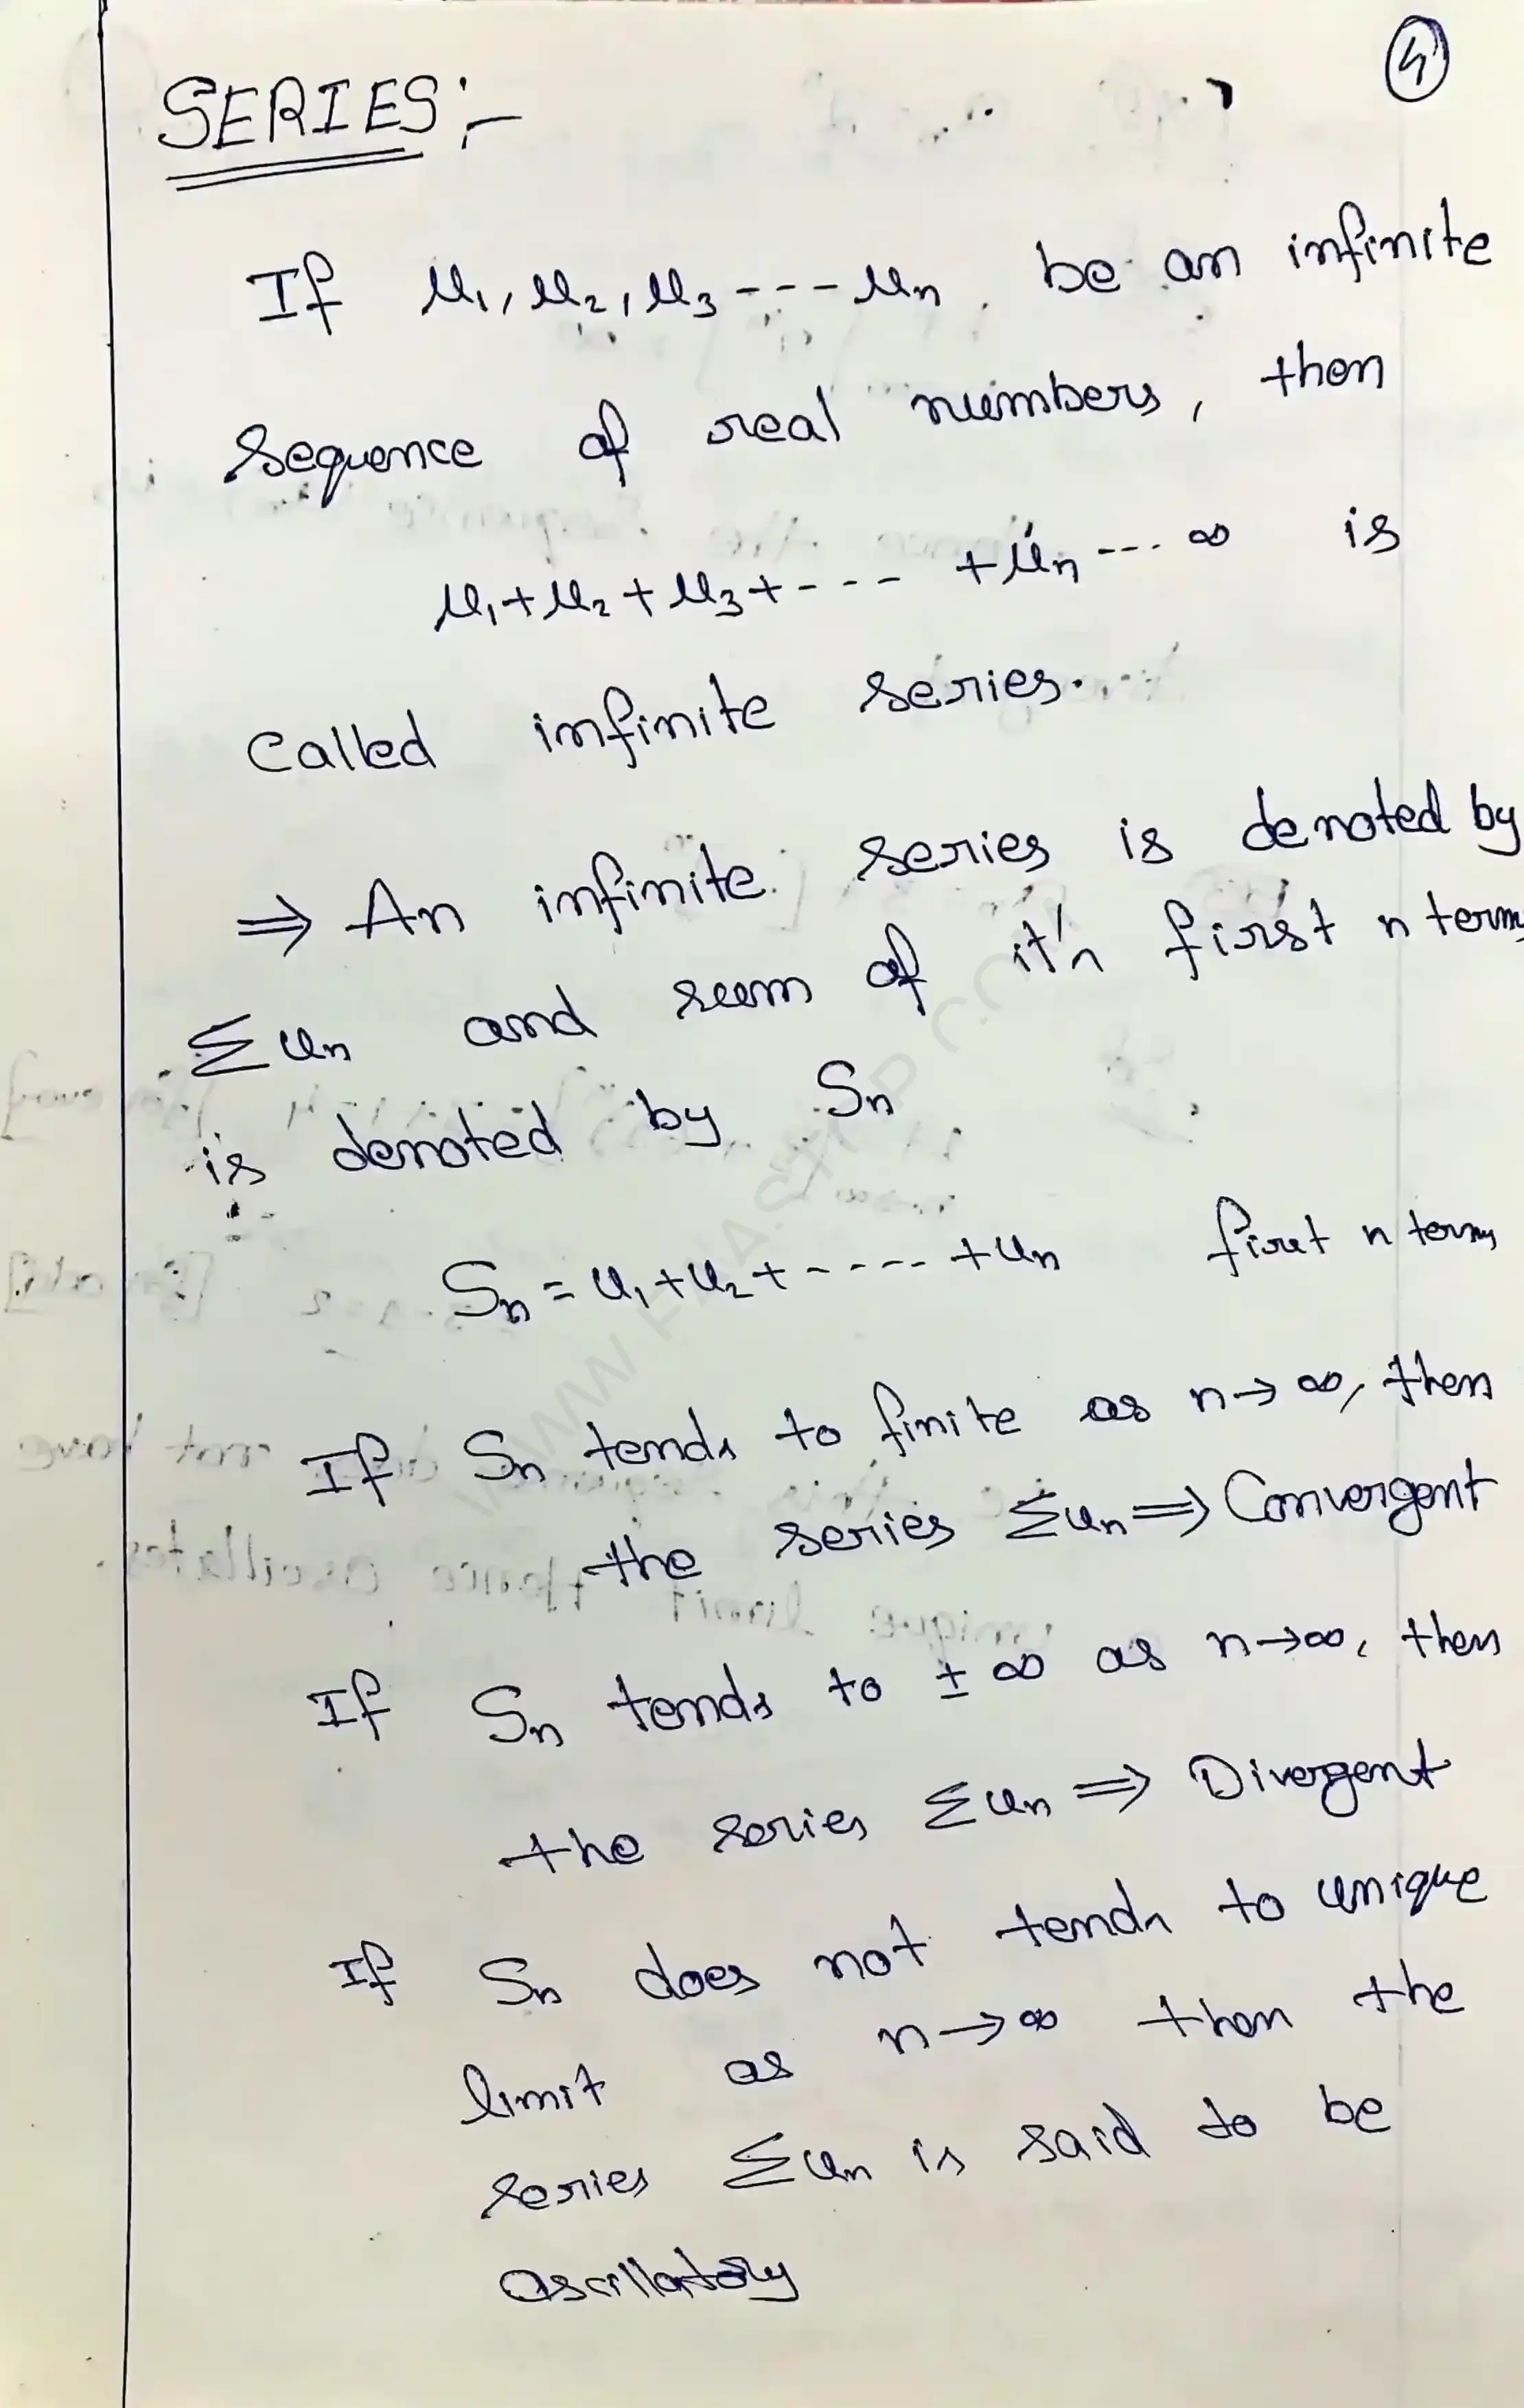 4
SERIES:-
If u₁, u₂, u₃ ---- uₙ be an infinite
sequence of real numbers, then
u₁+u₂+u₃+---- +uₙ --- ∞ is
Called infinite series.
⇒ An infinite series is denoted by
Σuₙ and sum of it's first n terms
is denoted by Sₙ
Sₙ = u₁+u₂+----- +uₙ first n terms
If Sₙ tends to finite as n→∞, then
the series Σuₙ ⇒ Convergent
If Sₙ tends to ±∞ as n→∞, then
the series Σuₙ ⇒ Divergent
If Sₙ does not tends to unique
limit as n→∞ then the
series Σuₙ is said to be
Oscillatory